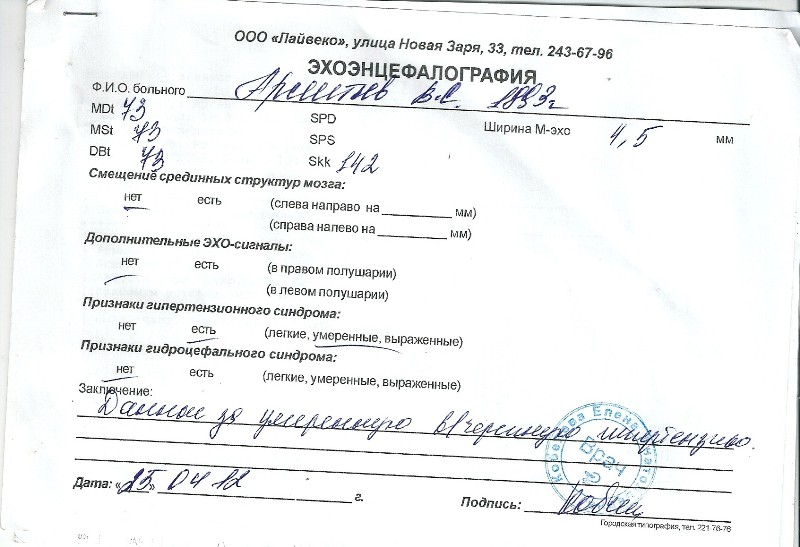 ООО «Лайвеко», улица Новая Заря, 33, тел. 243-67-96
ЭХОЭНЦЕФАЛОГРАФИЯ
Ф.И.О. больного В.С. 1993г
MDt 73 SPD Ширина М-эхо 4,5 мм
MSt 73 SPS
DBt 73 Skk 142
Смещение срединных структур мозга:
нет есть (слева направо на ________ мм)
(справа налево на ________ мм)
Дополнительные ЭХО-сигналы:
нет есть (в правом полушарии)
(в левом полушарии)
Признаки гипертензионного синдрома:
нет есть (легкие, умеренные, выраженные)
Признаки гидроцефального синдрома:
нет есть (легкие, умеренные, выраженные)
Заключение:
Данные за умеренную в/черепную гипертензию.
Елена
Врач
Дата: «25» 04 12 г.
Подпись:
Городская типография, тел. 221-76-76